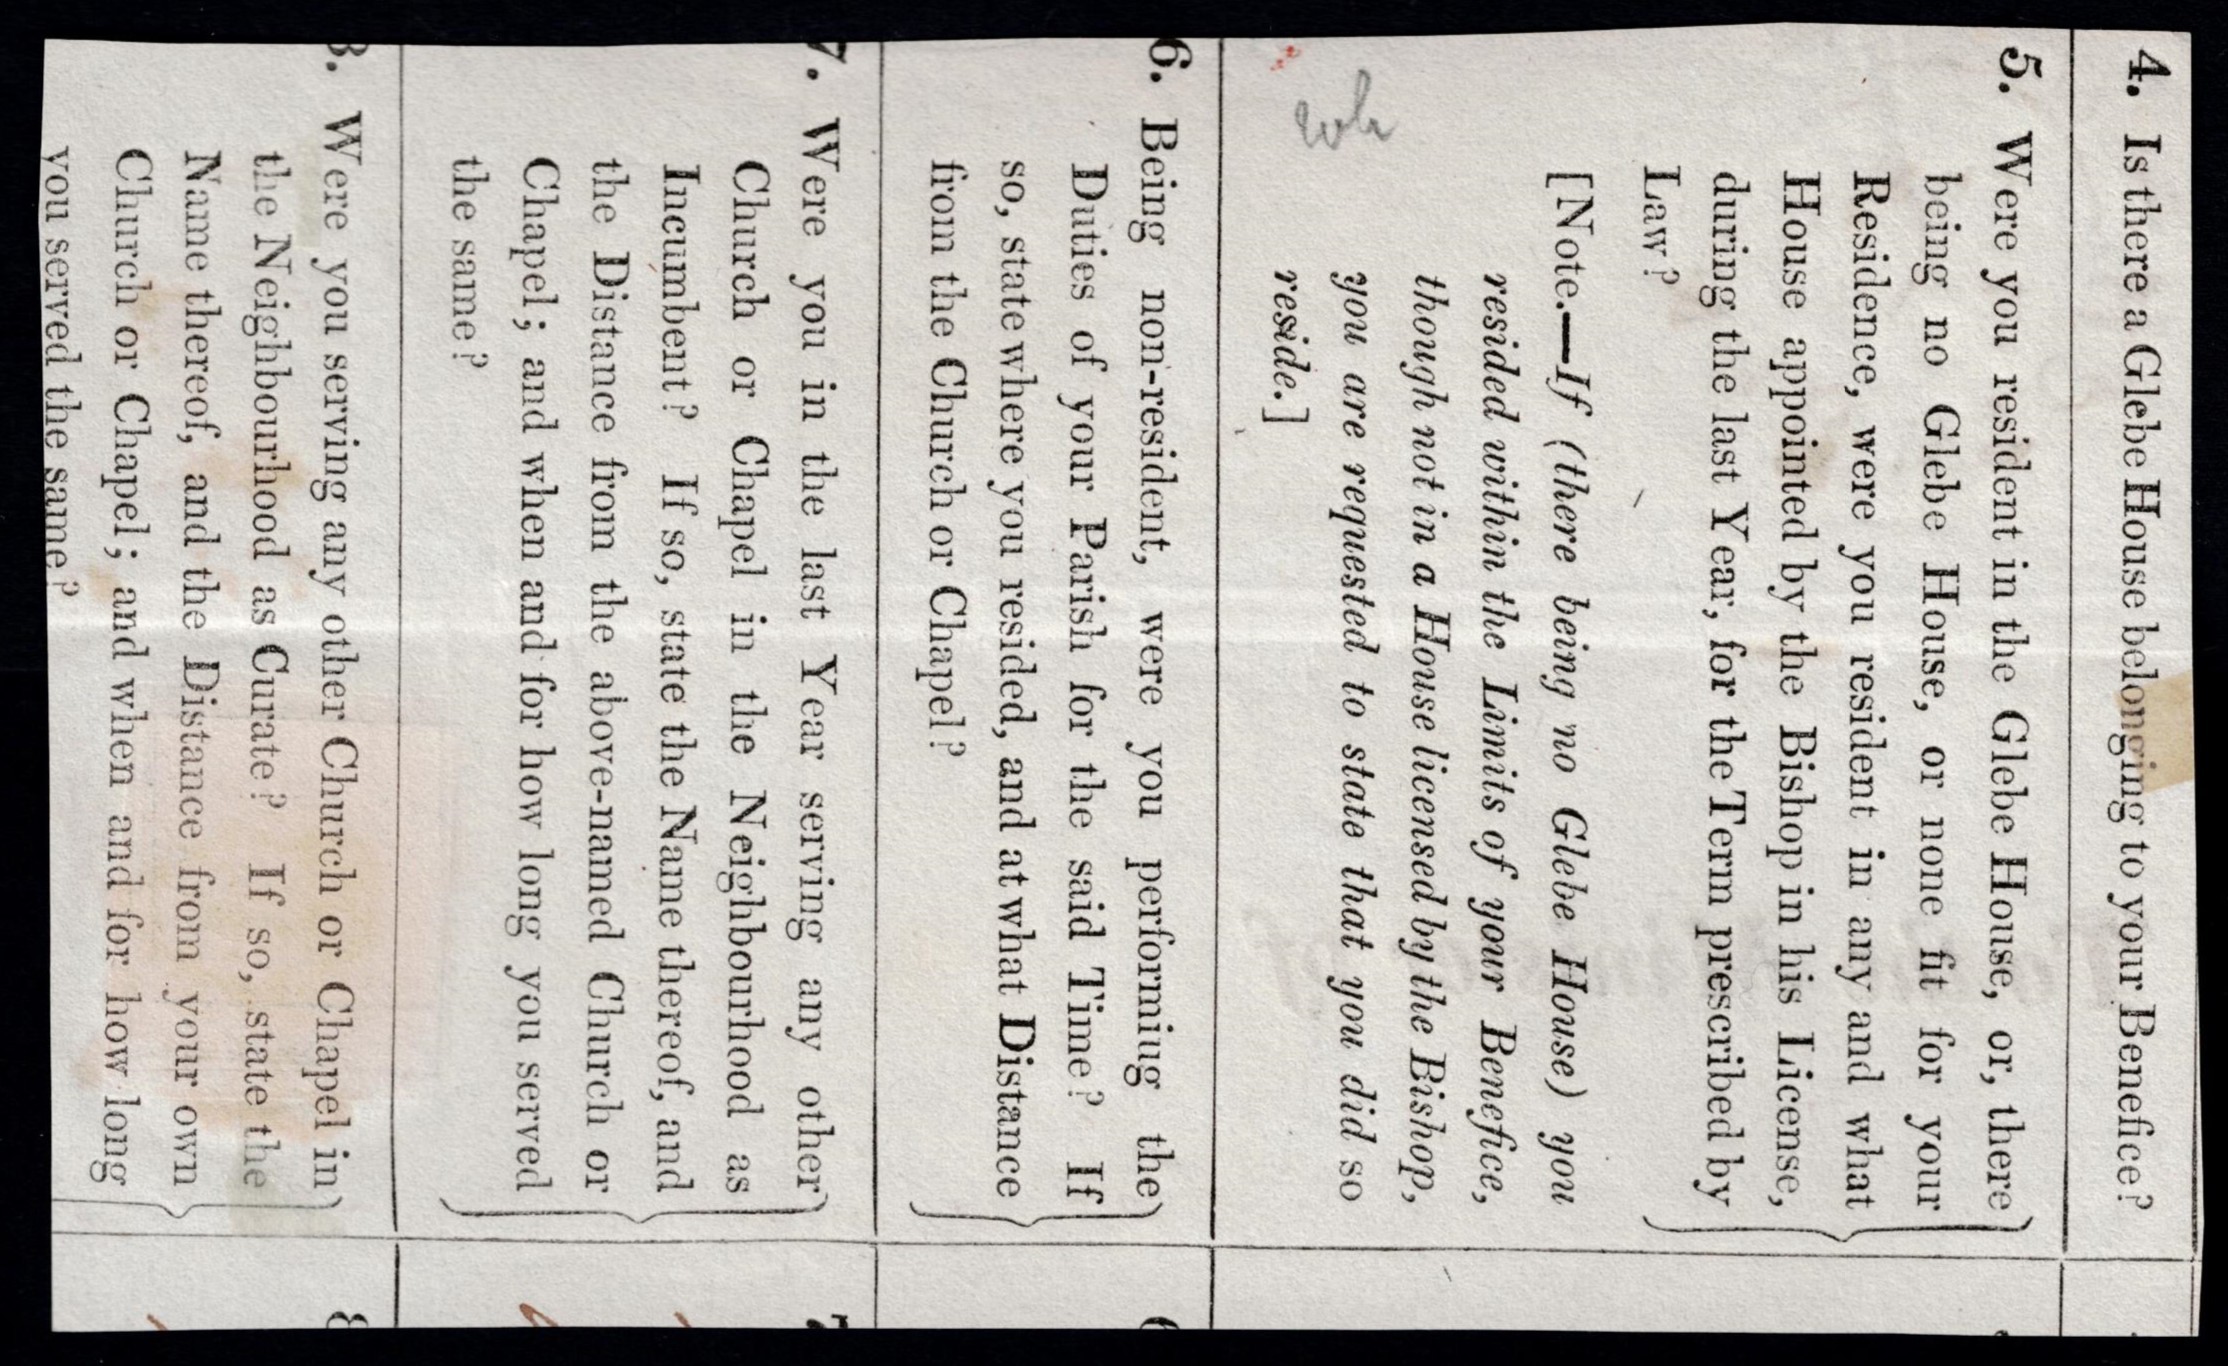 4. Is there a Glebe House belonging to your Benefice?
5. Were you resident in the Glebe House, or, there
being no Glebe House, or none fit for your
Residence, were you resident in any and what
House appointed by the Bishop in his License,
during the last Year, for the Term prescribed by
Law?
[Note.—If (there being no Glebe House) you
resided within the Limits of your Benefice,
though not in a House licensed by the Bishop,
you are requested to state that you did so
reside.]
6. Being non-resident, were you performiug the
Duties of your Parish for the said Time? If
so, state where you resided, and at what Distance
from the Church or Chapel?
7. Were you in the last Year serving any other
Church or Chapel in the Neighbourhood as
Incumbent? If so, state the Name thereof, and
the Distance from the above-named Church or
Chapel; and when and for how long you served
the same?
8. Were you serving any other Church or Chapel in
the Neighbourhood as Curate? If so, state the
Name thereof, and the Distance from your own
Church or Chapel; and when and for how long
you served the same?